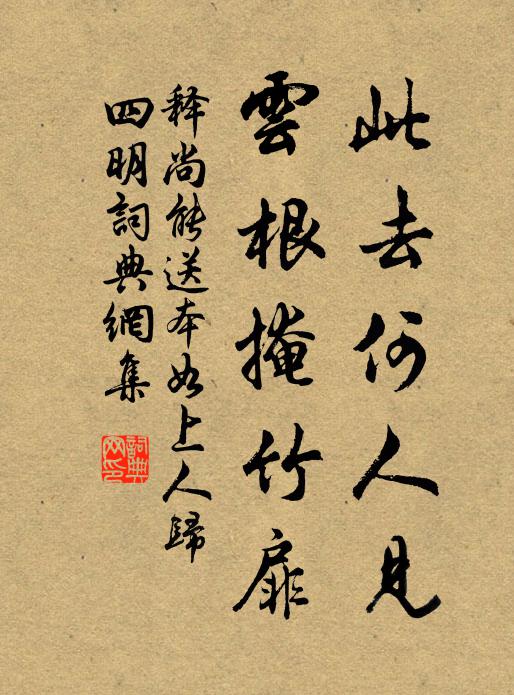 此去何人見
雲根掩竹扉
释尚能送本如上人歸
四明詞典網集
詞典網印